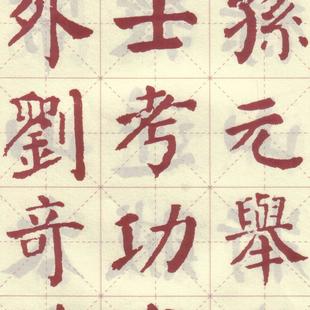 孫元舉
士考功
外劉奇